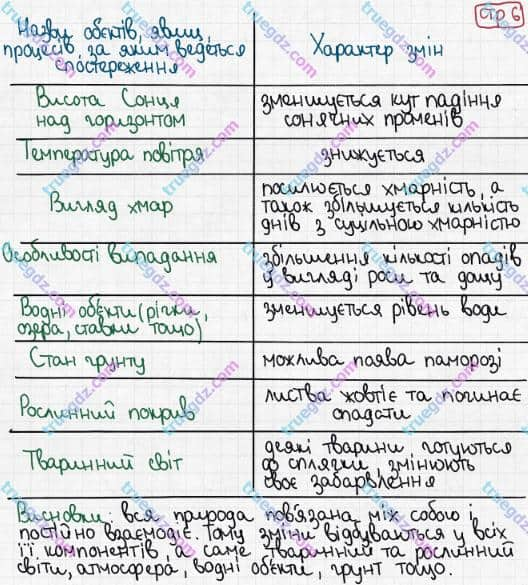 стр 6
Назви об'єктів, явищ,
процесів, за яким ведеться
спостереження
Характер змін
Висота Сонця
над горизонтом
зменшується кут падіння
сонячних променів
Температура повітря
знижується
Вигляд хмар
посилюється хмарність, а
також збільшується кількість
днів з суцільною хмарністю
Особливості випадання
збільшення кількості опадів
у вигляді роси та дощу
Водні об'єкти (річки,
озера, ставки тощо)
зменшується рівень води
Стан грунту
можлива поява паморозі
Рослинний покрив
листва жовтіє та починає
опадати
Тваринний світ
деякі тварини готуються
до сплячки, змінюють
своє забарвлення
Висновки: вся природа пов'язана між собою і
постійно взаємодіє. Тому зміни відбуваються у всіх
її компонентів, а саме тваринний та рослинний
світи, атмосфера, водні об'єкти, грунт тощо.
truegdz.com